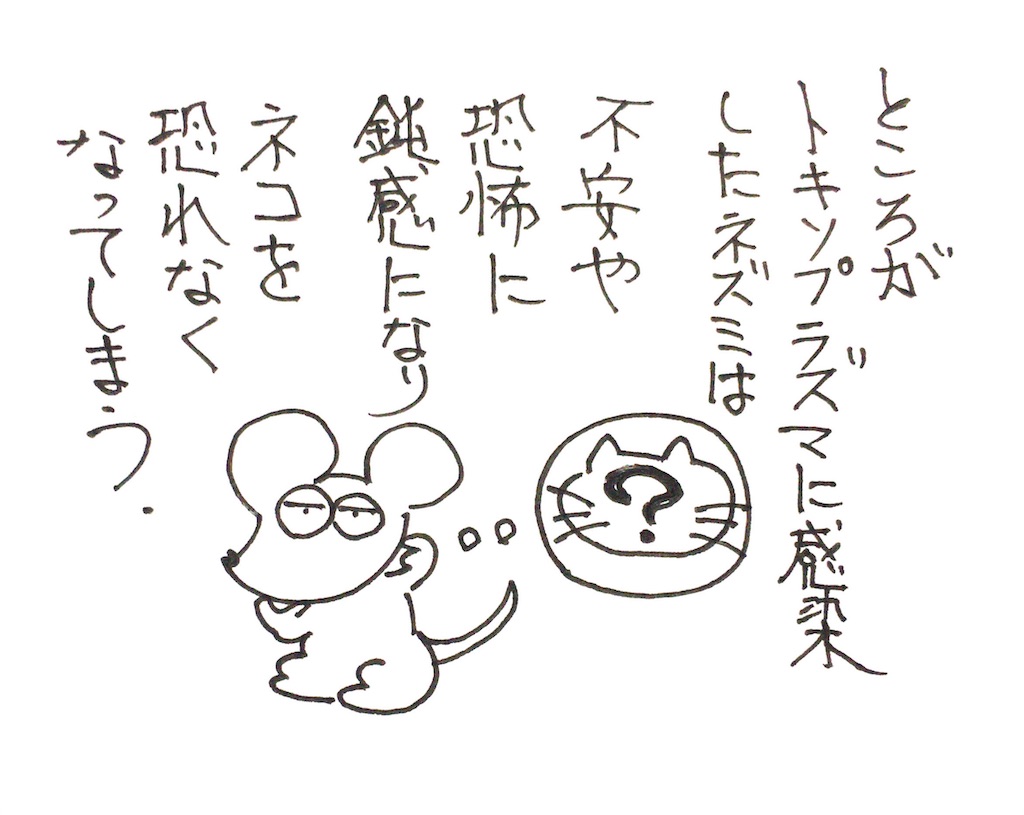 ところが
トキソプラズマに感染
したネズミは
不安や
恐怖に
鈍感になり
ネコを
恐れなく
なってしまう.
?